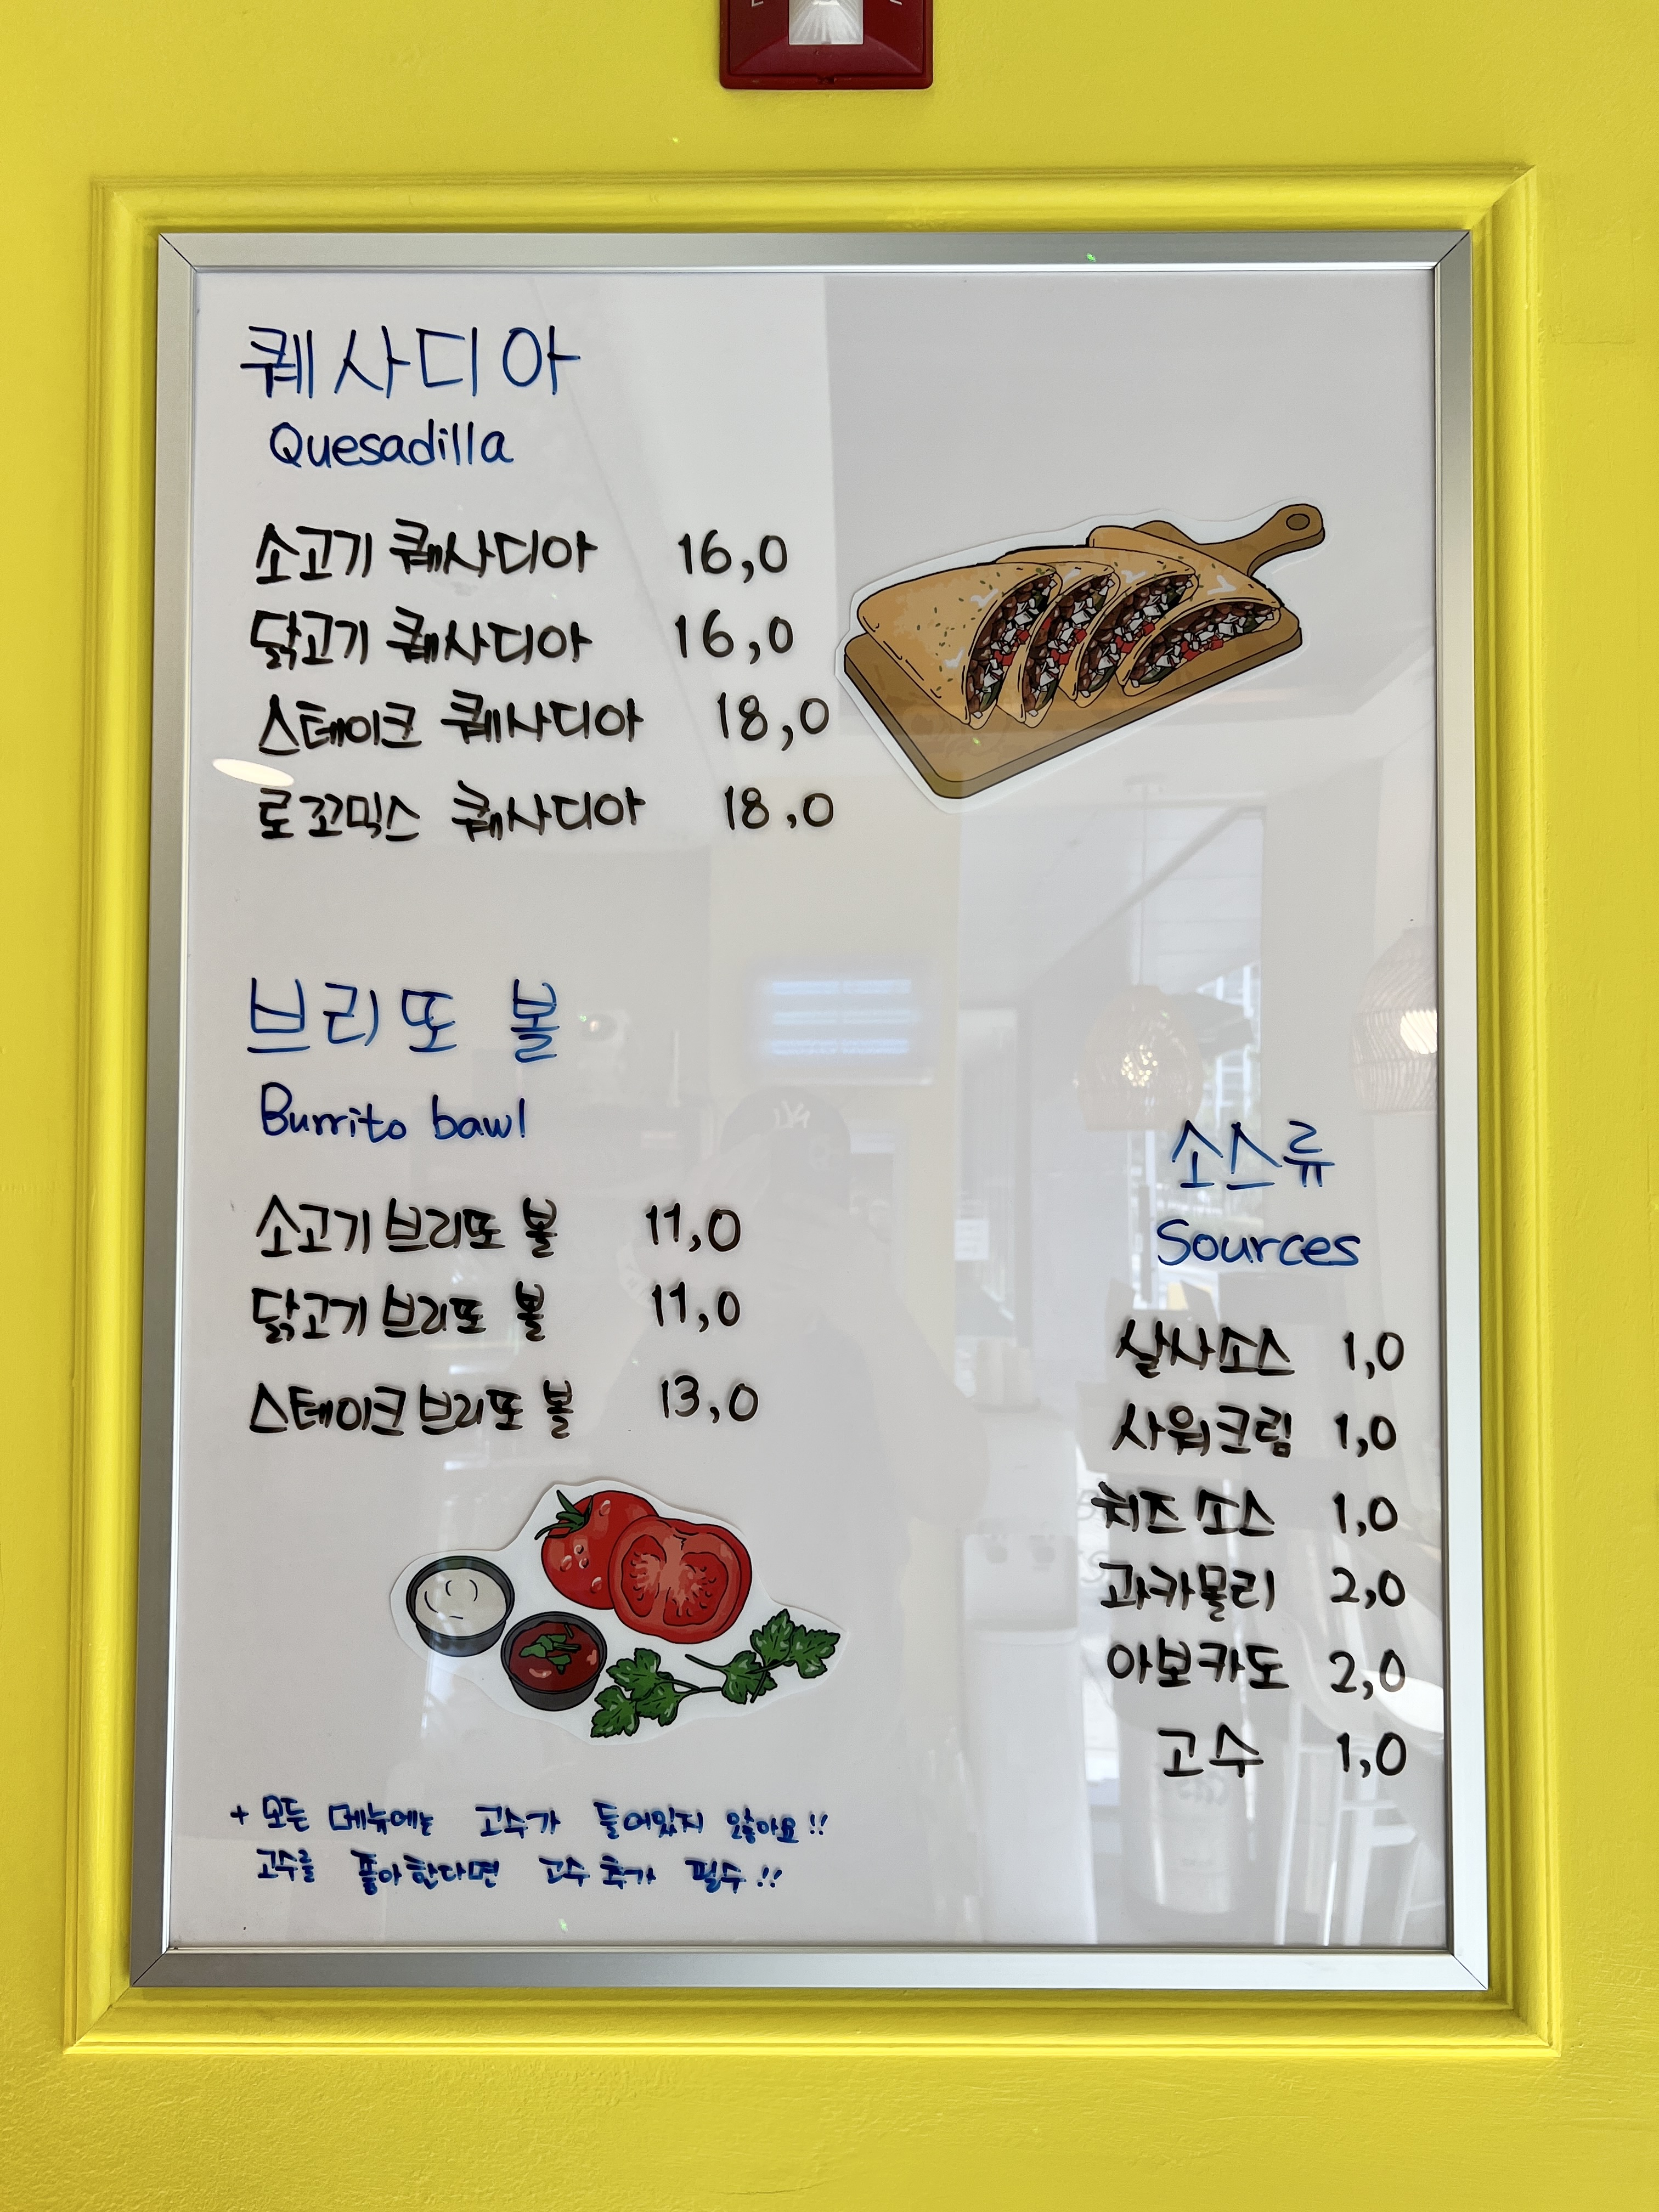 퀘사디아
Quesadilla
소고기 퀘사디아 16,0
닭고기 퀘사디아 16,0
스테이크 퀘사디아 18,0
로꼬믹스 퀘사디아 18,0
브리또 볼
Burrito bawl
소고기 브리또 볼 11,0
닭고기 브리또 볼 11,0
스테이크 브리또 볼 13,0
소스류
Sources
살사소스 1,0
사워크림 1,0
치즈 소스 1,0
과카몰리 2,0
아보카도 2,0
고수 1,0
+ 모든 메뉴에는 고수가 들어있지 않아요!!
고수를 좋아한다면 고수 추가 필수!!